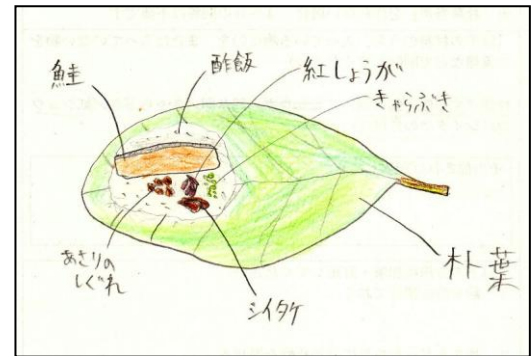 鮭
酢飯
紅しょうが
きゃらぶき
あさりの
しぐれ
シイタケ
朴葉